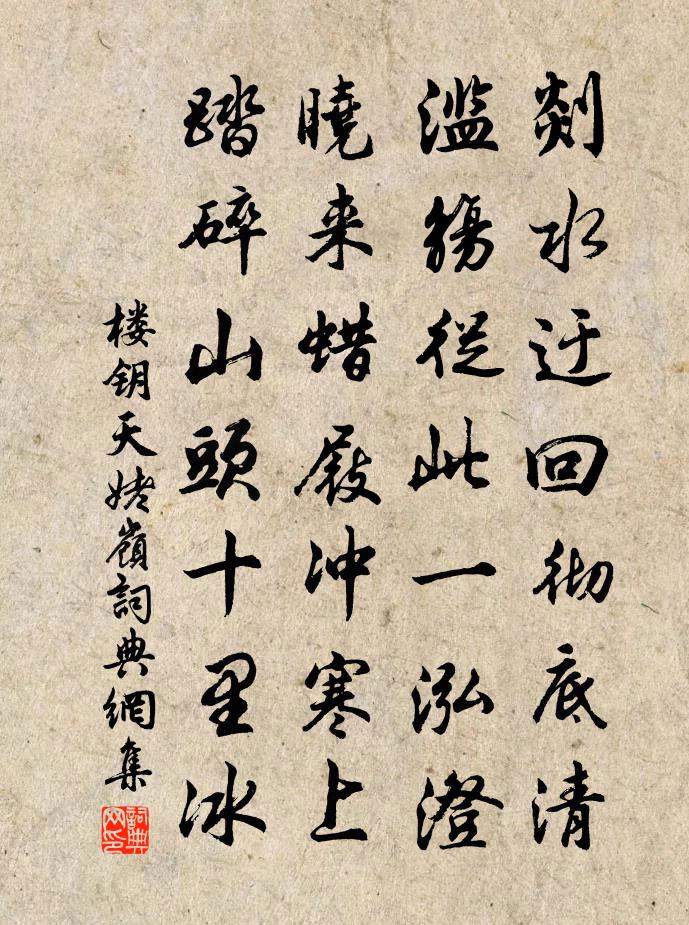 剡水迂回彻底清
滥觞从此一泓澄
曉来蜡屐冲寒上
踏碎山頭十里冰
楼钥天姥嶺詞典網集
詞典网印